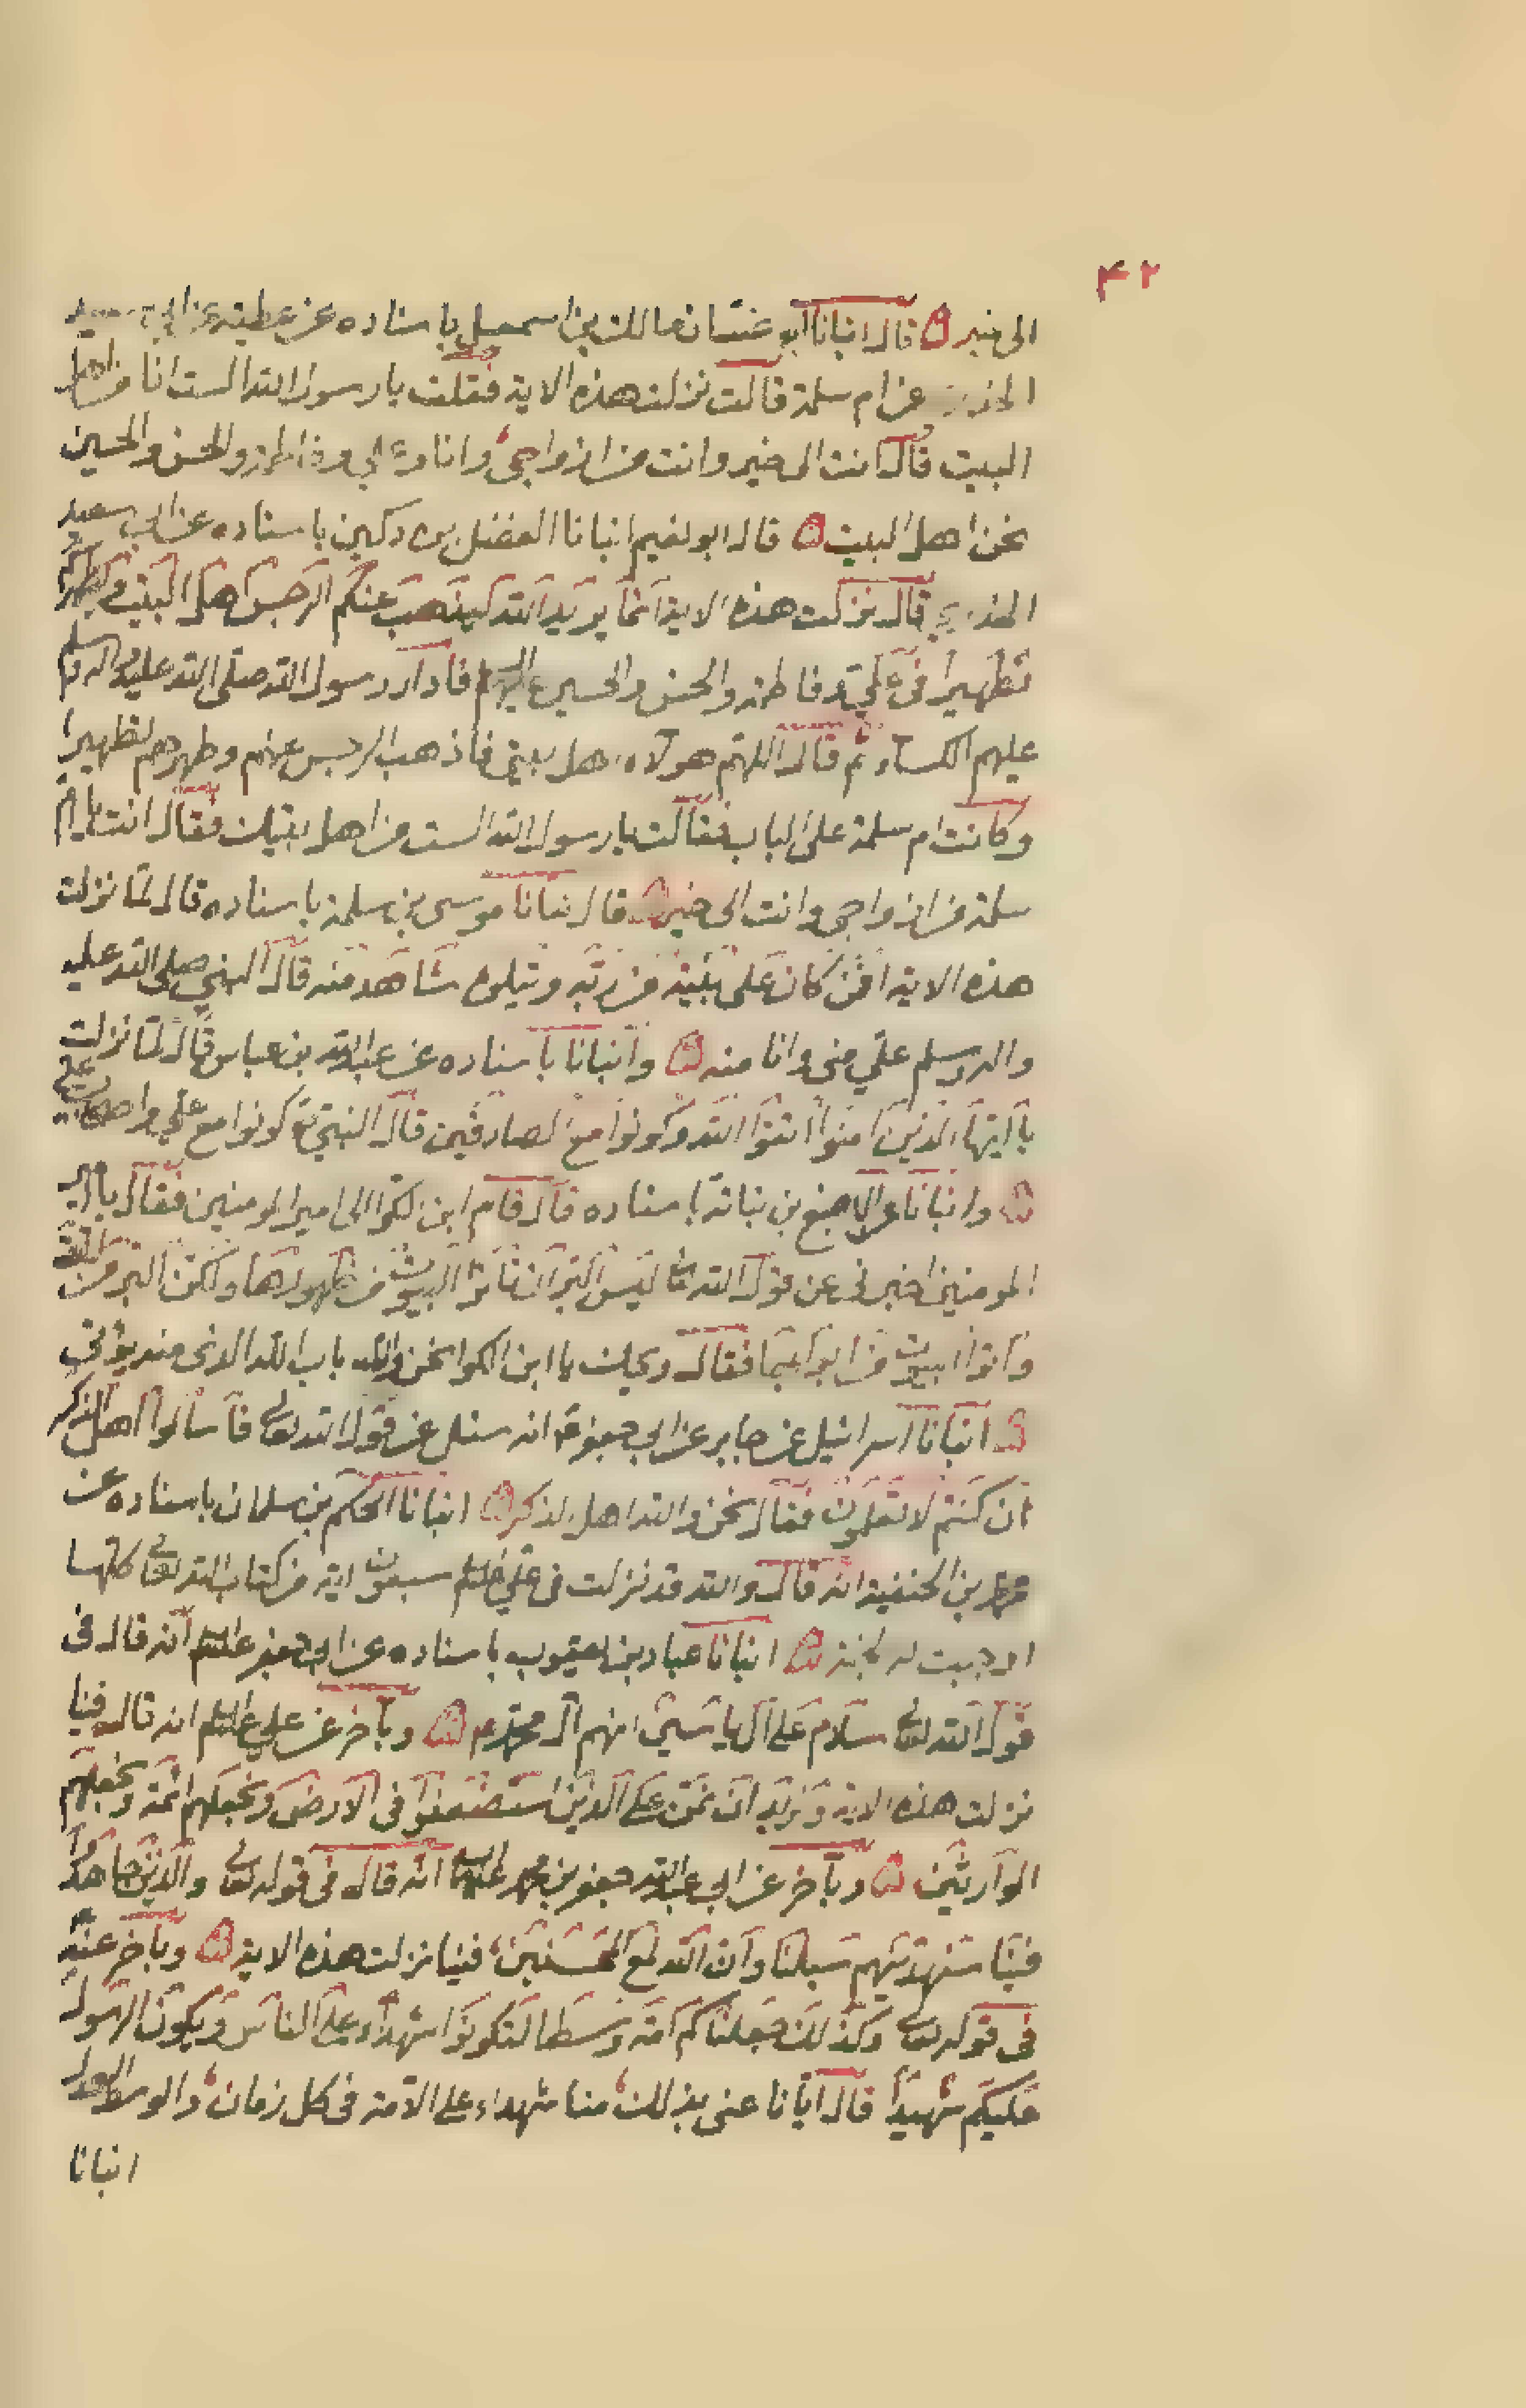 ۴۲
الى خير ۞ قال انبانا ابو غسان مالك بن اسمعيل باسناده عن عطية عن ابي سعيد
الخدري عن ام سلمة قالت نزلت هذه الاية فقلت يا رسول الله الست انا من اهل
البيت قال انت الى خير وانت من ازواجى وانا وعلي وفاطمة والحسن والحسين
نحن اهل البيت ۞ قال ابو نعيم انبانا الفضل بن دكين باسناده عن ابي سعيد
الخدري قال نزلت هذه الاية انما يريد الله ليذهب عنكم الرجس اهل البيت ويطهركم
تطهيرا في علي وفاطمة والحسن والحسين عليهم السلام فادار رسول الله صلى الله عليه واله وسلم
عليهم الكساء ثم قال اللهم هولاء اهل بيتى فاذهب الرجس عنهم وطهرهم تطهيرا
وكانت ام سلمة على الباب فقالت يا رسول الله الست من اهل بيتك فقال انت يا ام
سلمة من ازواجى وانت الى خير ۞ قال انبانا موسى بن سلمة باسناده قال لما نزلت
هذه الاية افمن كان على بينة من ربه ويتلوه شاهد منه قال النبي صلى الله عليه
واله وسلم علي منى وانا منه ۞ وانبانا باسناده عن عبد الله بن عباس قال لما نزلت
يا ايها الذين امنوا اتقوا الله وكونوا مع الصادقين قال النبي ص كونوا مع علي واصحاب علي
۞ وانبانا عن الاصبغ بن نباتة باسناده قال قام ابن الكوا الى امير المومنين فقال يا امير
المومنين اخبرنى عن قول الله تعالى ليس البر ان تاتوا البيوت من ظهورها ولكن البر من اتقى
واتوا البيوت من ابوابها فقال ويحك يا ابن الكوا نحن والله باب الله الذى منه يؤتى
۞ انبانا اسرائيل عن جابر عن ابي جعفر ع انه سئل عن قول الله تعالى فاسألوا اهل الذكر
ان كنتم لا تعلمون فقال نحن والله اهل الذكر ۞ انبانا الحكم بن سلمان باسناده عن
محمد بن الحنفية انه قال والله قد نزلت في علي عليه السلم سبعون اية من كتاب الله تعالى كلها
اوجبت له الجنة ۞ انبانا عباد بن يعقوب باسناده عن ابي جعفر عليه السلم انه قال فى
قول الله تعالى سلام على ال ياسين انهم ال محمد ع م ۞ وبآخر عن علي عليه السلم انه قال فينا
نزلت هذه الاية ونريد ان نمن على الذين استضعفوا فى الارض ونجعلهم ائمة ونجعلهم
الوارثين ۞ وبآخر عن ابي عبد الله جعفر بن محمد عليهما السلم انه قال فى قوله تعالى والذين جاهدوا
فينا لنهدينهم سبلنا وان الله لمع المحسنين فينا نزلت هذه الاية ۞ وبآخر عنه
فى قوله تعالى وكذلك جعلناكم امة وسطا لتكونوا شهداء على الناس ويكون الرسول
عليكم شهيدا قال ايانا عنى بذلك منا شهداء على الامة فى كل زمان والوسط العدل
انبانا